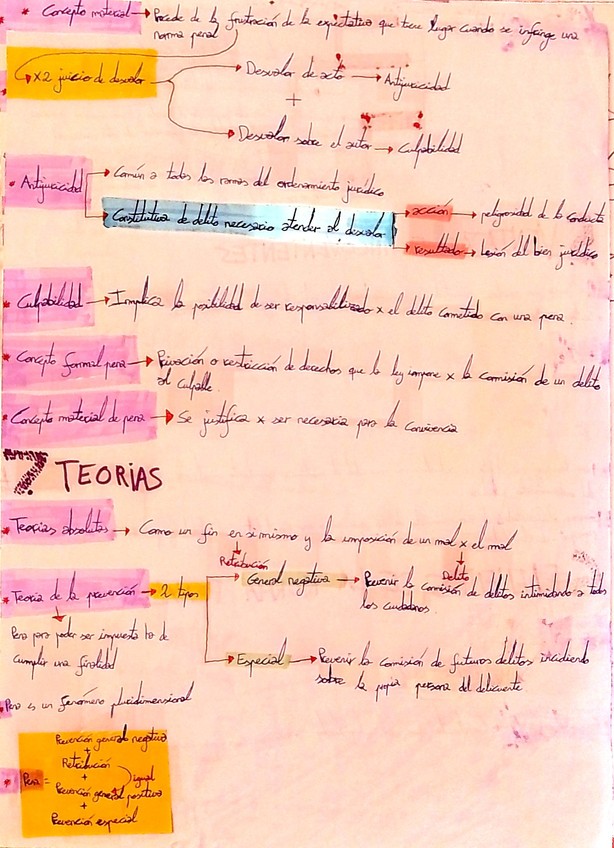 * Concepto material → Procede de la frustración de la expectativa que tiene lugar cuando se infringe una
norma penal
x2 juicio de desvalor
Desvalor de acto → Antijuricidad
+
Desvalor sobre el autor → Culpabilidad
* Antijuricidad
Común a todas las ramas del ordenamiento jurídico
Constitutiva de delito necesario atender al desvalor
acción → peligrosidad de la conducta
resultado → Lesión del bien jurídico
* Culpabilidad → Implica la posibilidad de ser responsabilizado x el delito cometido con una pena.
* Concepto formal pena → Privación o restricción de derechos que la ley impone x la comisión de un delito
al culpable.
* Concepto material de pena → Se justifica x ser necesaria para la convivencia
7 TEORIAS
* Teorías absolutas → Como un fin en si mismo y la imposición de un mal x el mal
Retribución
Delito
* Teoría de la prevención → 2 tipos
General negativa → Prevenir la comisión de delitos intimidando a todos
los ciudadanos.
Pena para poder ser impuesta ha de
cumplir una finalidad
Especial → Prevenir la comisión de futuros delitos incidiendo
sobre la propia persona del delicuente
Pena es un fenómeno pluridimensional
Prevención general negativa
+
Retribución
+
igual
* Pena =
Prevención general positiva
+
Prevención especial